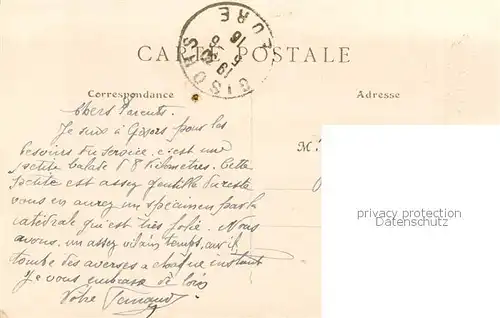 CARTE POSTALE
GISORS
EURE
Correspondance
Adresse
Chers Parents.
Je suis à Gisors pour les
besoins du service. c'est une
petite balade d 8 Kilomètres. Cette
petite est assez gentille du reste
vous en aurez un spécimen par la
cathédrale qu'est très jolie. Nous
avons un assez vilain temps, car il
tombe des averses a chaque instant
Je vous embrasse de loin
Votre Fernand
M.
privacy protection
Datenschutz